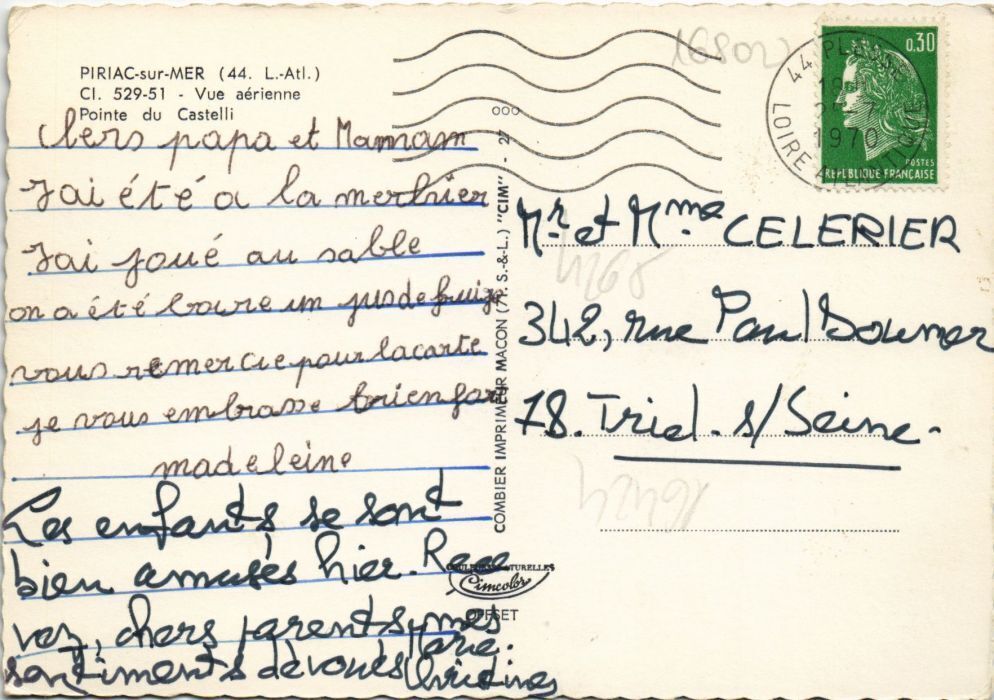 PIRIAC-sur-MER (44. L.-Atl.)
Cl. 529-51 - Vue aérienne
Pointe du Castelli
chers papa et Mamam
J'ai été a la mer hier
J'ai joué au sable
on a été boire un jus de fuige
vous remercie pour la carte
je vous embrasse brien for
madeleine
Les enfants se sont
bien amusés hier. Rece
vez, chers parents, mes
sentiments dévoués Marie.
Christine
COMBIER IMPRIMEUR MACON (71. S.-&-L.) "CIM" - 27
COULEURS NATURELLES
Cimcolor
OFFSET
16802
44 PLAC
1970
LOIRE ATLANTIQUE
0.30
POSTES
REPUBLIQUE FRANÇAISE
Mr et Mme CELERIER
342, rue Paul Doumer
78. Triel. s/Seine.
4268